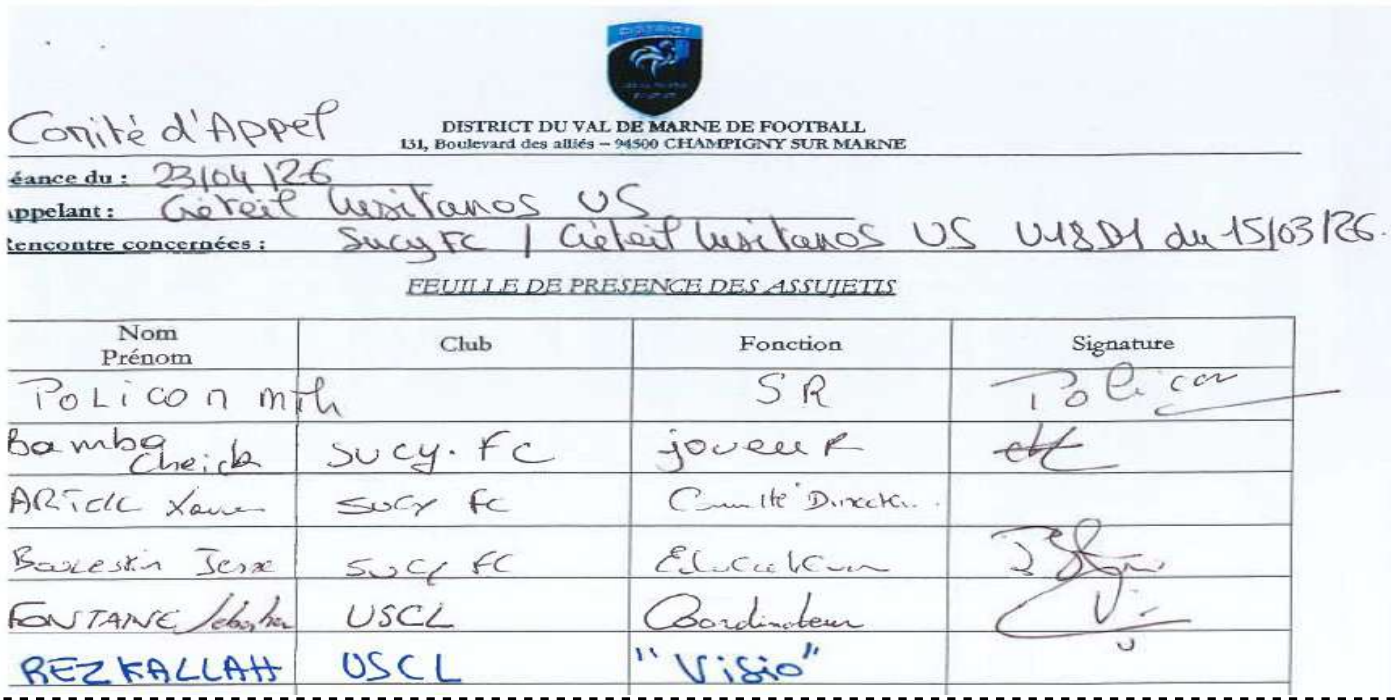 DISTRICT
Comité d'Appel
DISTRICT DU VAL DE MARNE DE FOOTBALL
131, Boulevard des alliés – 94500 CHAMPIGNY SUR MARNE
éance du : 23/04/26
ppelant : Créteil Lusitanos US
Rencontre concernées : Sucy FC / Créteil Lusitanos US U18D1 du 15/03/26.
FEUILLE DE PRESENCE DES ASSUJETIS
Nom Prénom Club Fonction Signature
POLICON mth SR Policon
Bamba Cheick SUCY. FC joueuR
Sucy FC Comité Direct
Jesse Sucy FC Educateur
FONTAINE Sébastien USCL Coordinateur
REZKALLAH USCL "Visio"